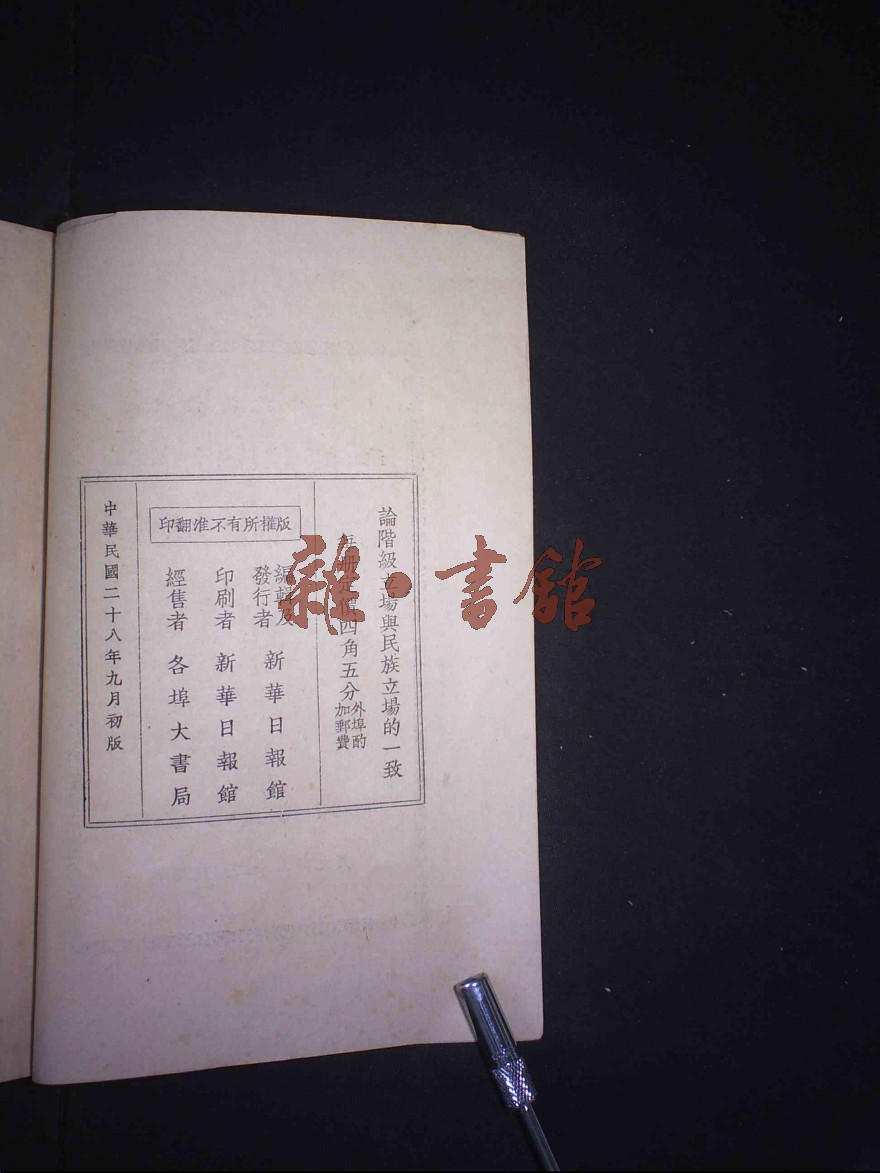 論階級立場與民族立場的一致
每冊定價四角五分 外埠酌加郵費
版權所有不准翻印
編輯及發行者 新華日報館
印刷者 新華日報館
經售者 各埠大書局
中華民國二十八年九月初版
雜·書館